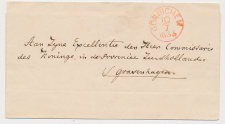 Aan Zyne Excellentie den Heer Commissaris
des Konings in de Provincie Zuidholland
's Gravenhage